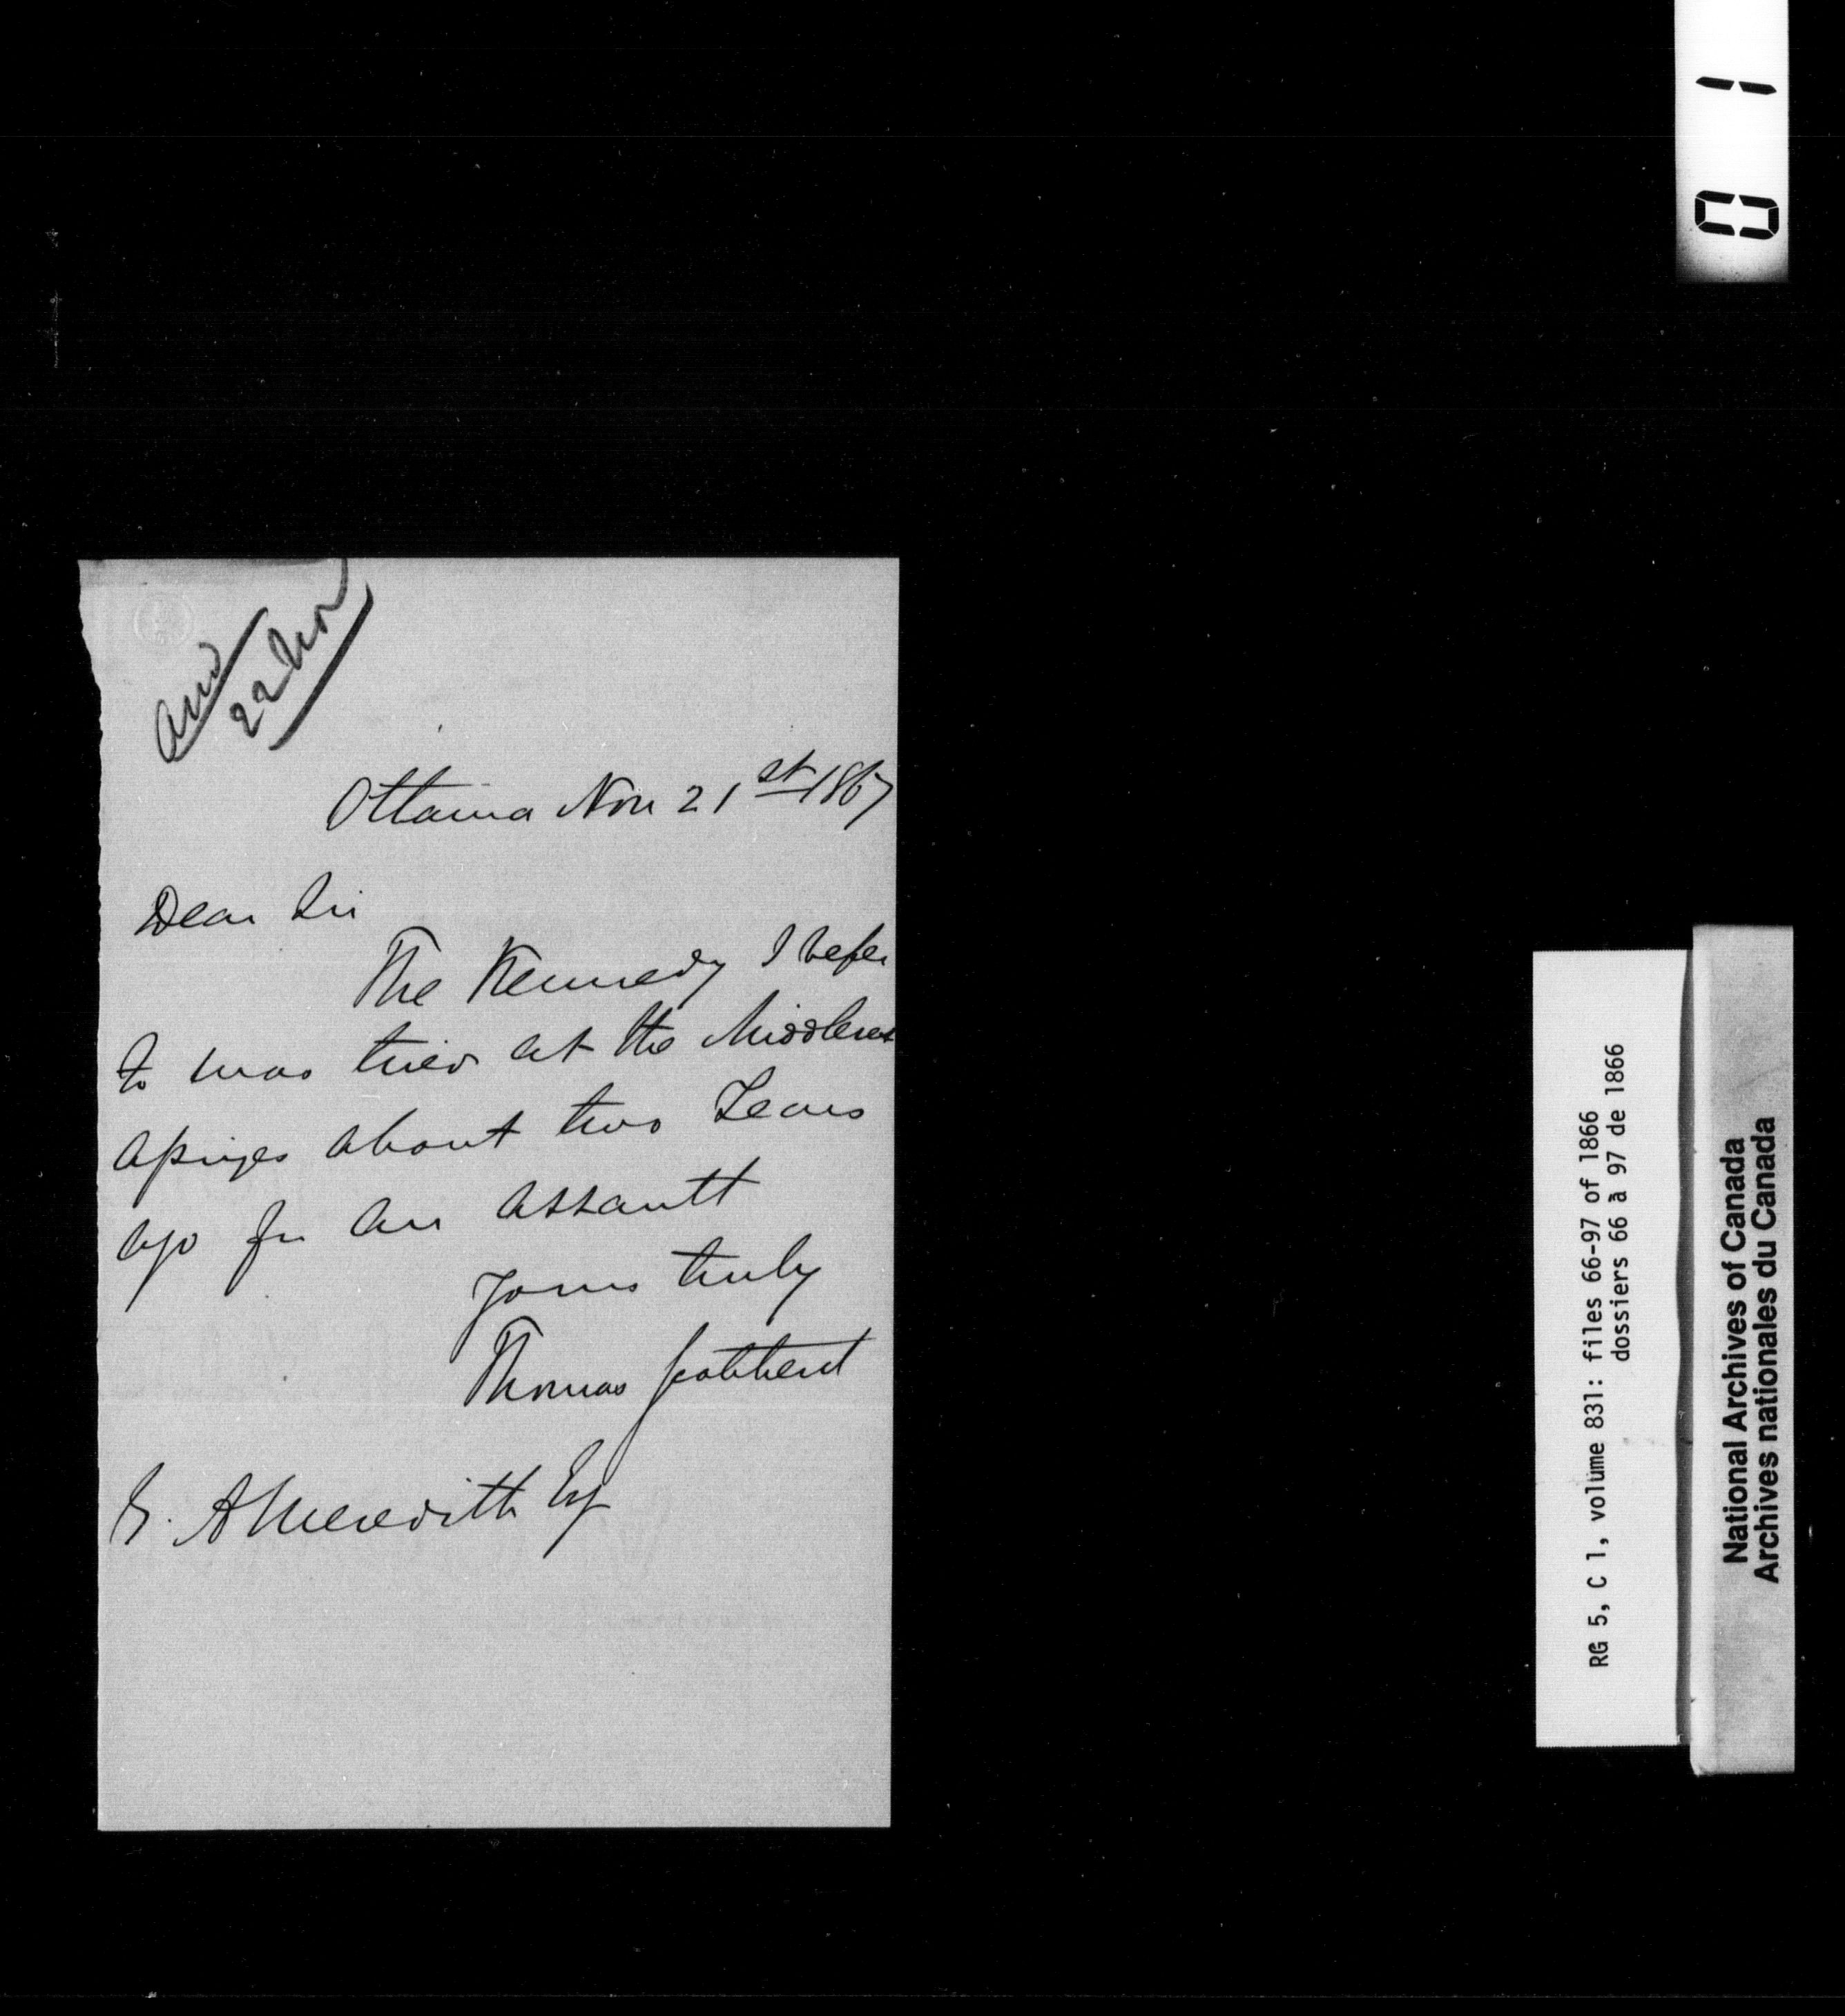 and
22 Nov
Ottawa Nov 21st 1867
Dear Sir
The Kennedy I refer
to was tried at the Middlesex
assizes about two Years
ago for an assault
Yours truly
Thomas
E. A Meredith Esq
01
RG 5, C 1, volume 831: files 66-97 of 1866
dossiers 66 à 97 de 1866
National Archives of Canada
Archives nationales du Canada